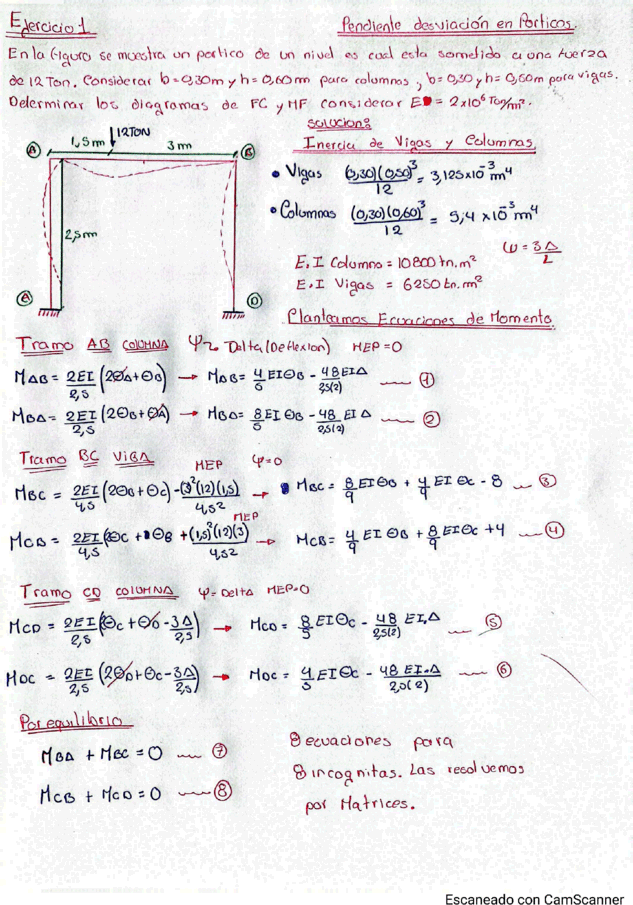 Ejercicio 1
Pendiente desviación en Porticos.
En la figura se muestra un portico de un nivel es cual esta sometido a una fuerza
de 12 Ton. Considerar b=0,30m y h=0,60m para columnas, b=0,30 y h=0,50m para vigas.
Determinar los diagramas de FC y MF considerar E = 2x10⁶ Ton/m².
Solucion:
Inercia de Vigas y Columnas
12TON
A 1,5m 3m B
2,5m
A D
• Vigas (0,30)(0,50)³/12 = 3,125x10⁻³ m⁴
• Columnas (0,30)(0,60)³/12 = 5,4 x10⁻³ m⁴
ω = 3Δ/L
E.I Columno = 10800 tn.m²
E.I Vigas = 6250 tn.m²
Planteamos Ecuaciones de Momento.
Tramo AB COLUMNA Ψ~ Delta (Deflexion) MEP=0
MAB = 2EI/2,5 (2θA+θB) → MAB = 4/5 EIθB - 48EIΔ/2,5(2) ① 
MBA = 2EI/2,5 (2θB+θA) → MBA = 8/5 EIθB - 48 EIΔ/2,5(2) ②
Tramo BC VIGA MEP Ψ=0
MBC = 2EI/4,5 (2θB+θC) - (3)²(12)(1,5)/4,5² → MBC = 8/9 EIθB + 4/9 EI θC - 8 ③
MEP
MCB = 2EI/4,5 (2θC + θB + (1,5)²(12)(3)/4,5² → MCB = 4/9 EI θB + 8/9 EIθC + 4 ④
Tramo CD COLUMNA Ψ=Delta MEP=0
MCD = 2EI/2,5 (2θC + θD - 3Δ/2,5) → MCD = 8/5 EIθC - 48/2,5(2) EI.Δ ⑤
MDC = 2EI/2,5 (2θD+θC - 3Δ/2,5) → MDC = 4/5 EIθC - 48 EI.Δ/2,5(2) ⑥
Por equilibrio
MBA + MBC = 0 ⑦
MCB + MCD = 0 ⑧
8 ecuaciones para
8 incognitas. Las resolvemos
por Matrices.
Escaneado con CamScanner